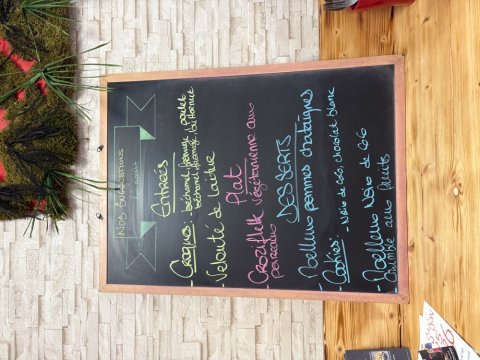 Nos suggestions
Bon appétit
Entrées
- Croques : béchamel, fromage, poulet
béchamel, fromage,
- Velouté de laitue
Plat
- Croziflette végétarienne aux
poireaux
DESSERTS
- Moelleux pommes châtaignes
- Cookies : - Noix de GG, chocolat blanc
- Moelleux Noix de GG
- Crumble aux fruits